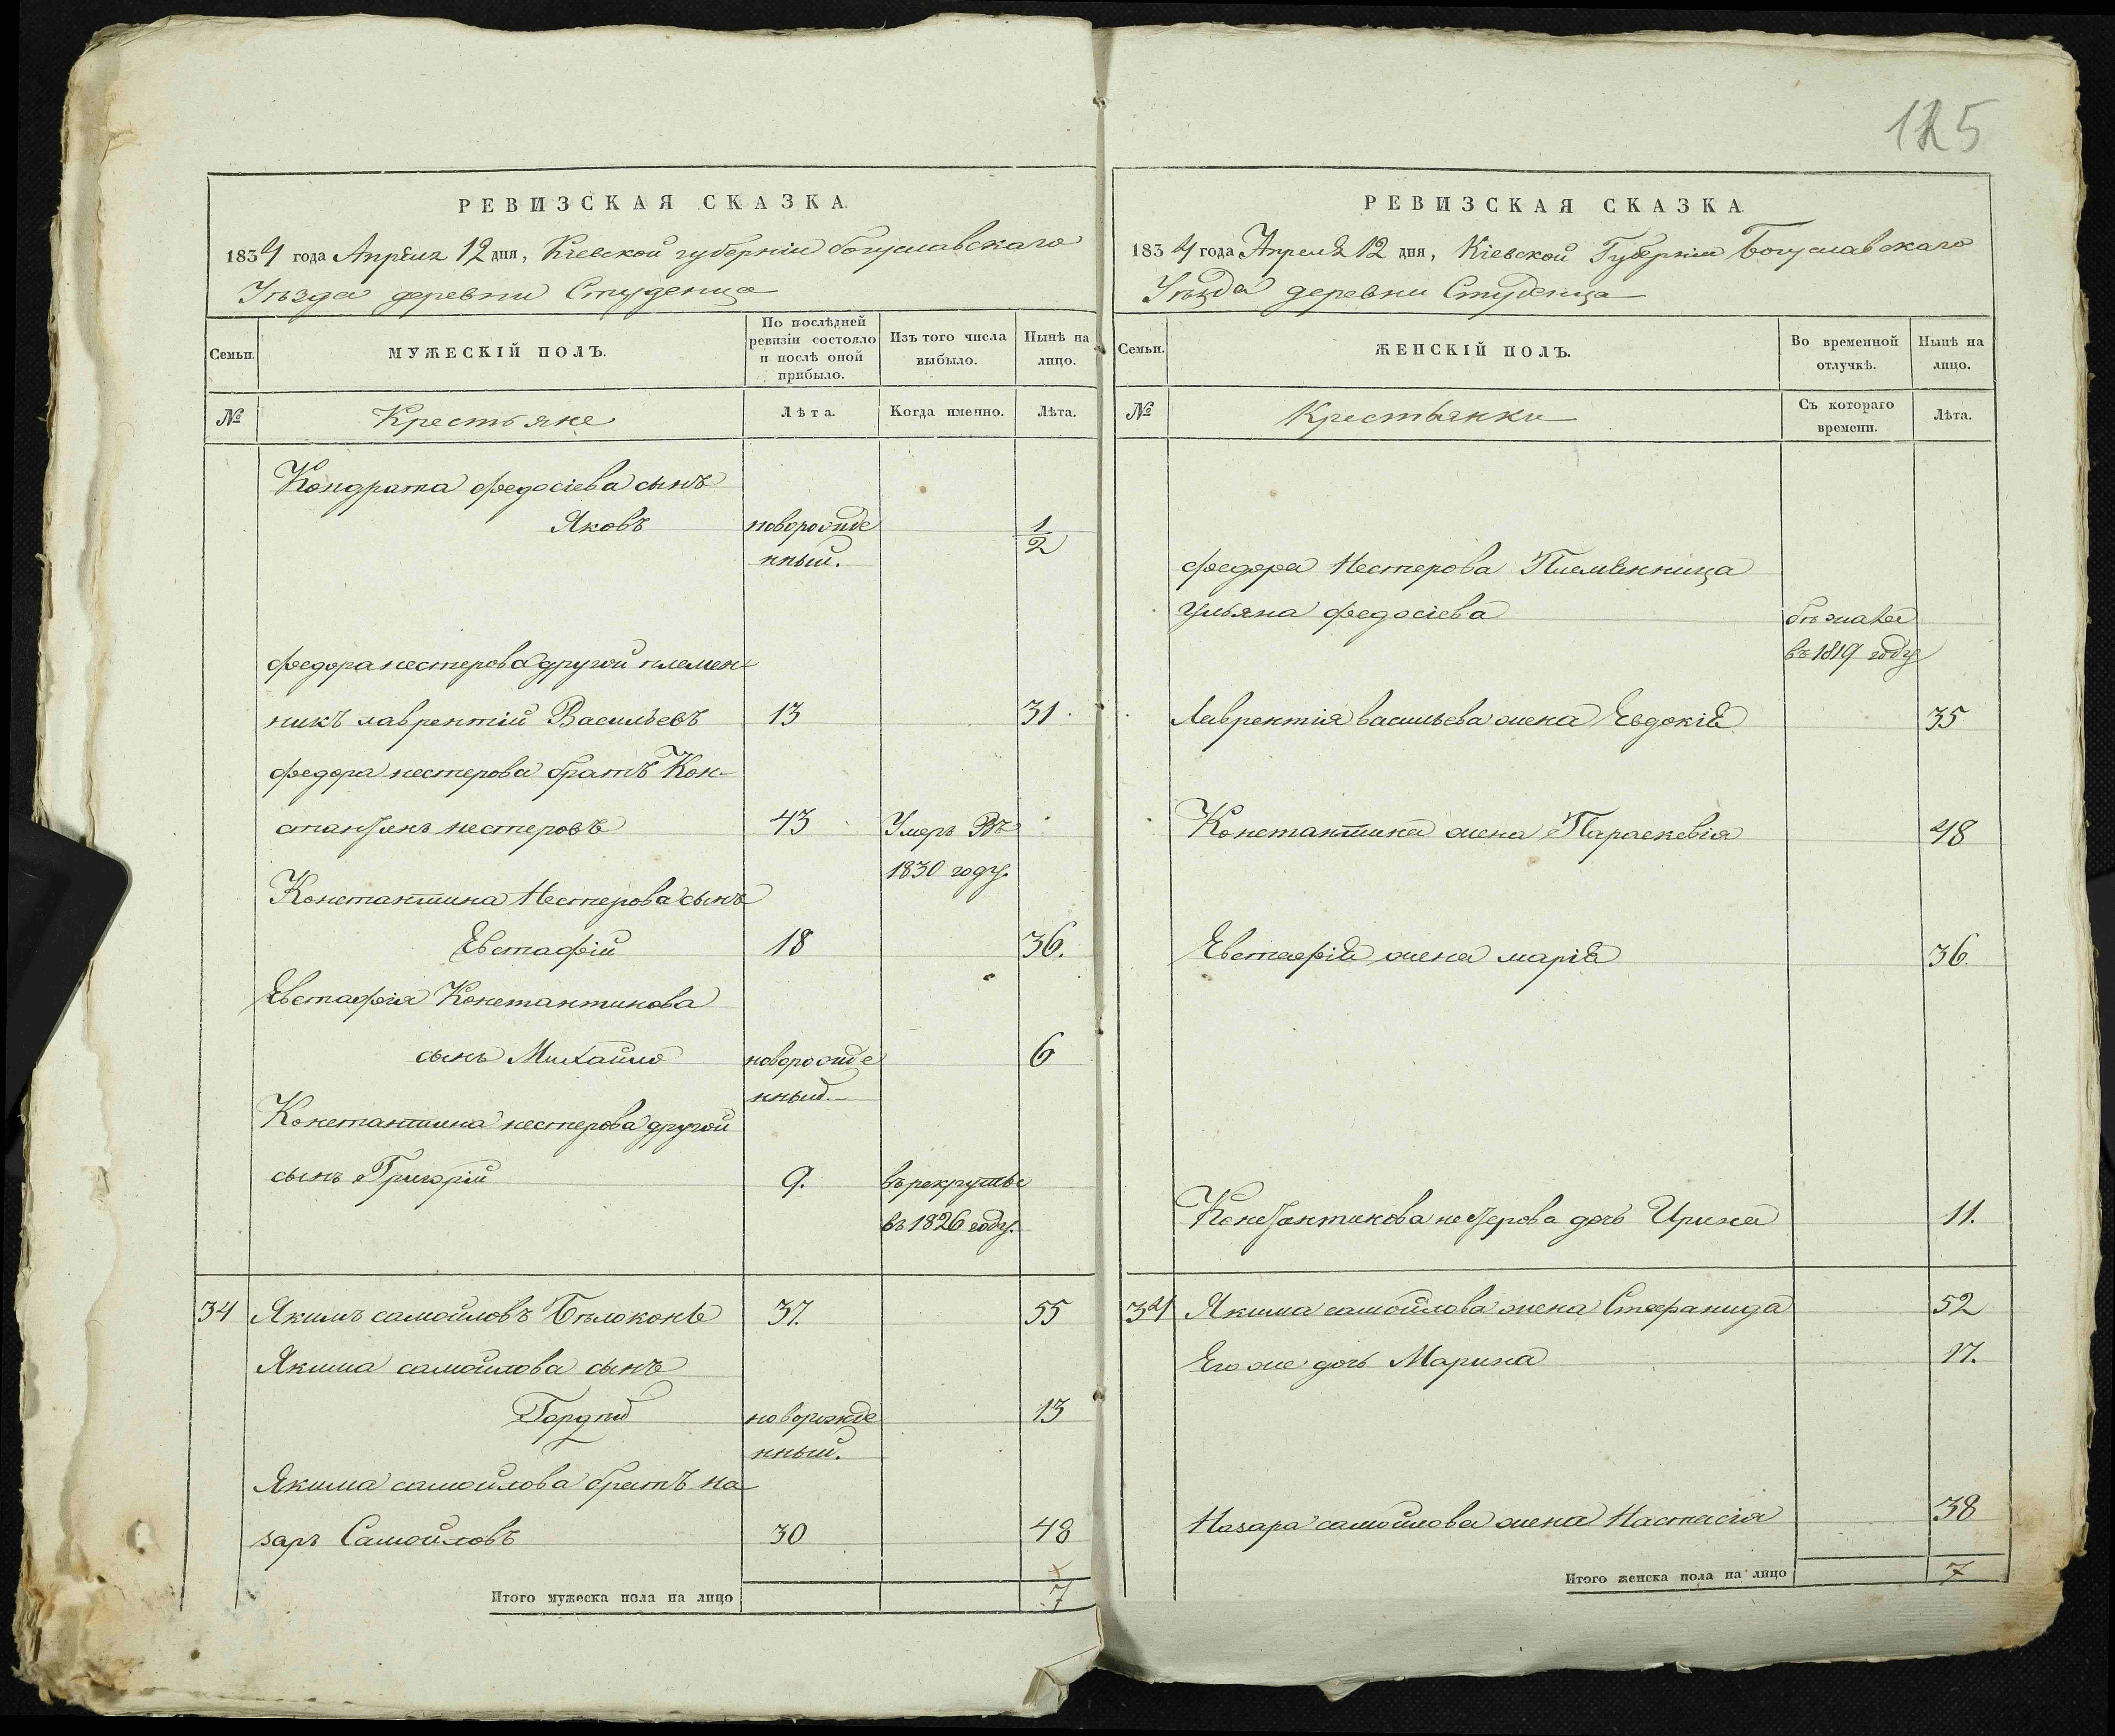 125
РЕВИЗСКАЯ СКАЗКА
1834 года Апреля 12 дня, Кіевской губерніи богуславскаго
Уѣзда деревни Студенца
Семьи.
МУЖЕСКІЙ ПОЛЪ.
По послѣдней ревизіи состояло и послѣ оной прибыло.
Изъ того числа выбыло.
Нынѣ на лицо.
№
Крестьяне
Лѣта.
Когда именно.
Лѣта.
Кондрата федосіева сынъ
Яковъ новорожде 1/2
нный.
федора нестерова другой племен
никъ лаврентій Васильевъ 13 31.
федора нестерова братъ Кон-
стантинъ нестеровъ 43 Умеръ Въ
1830 году.
Константина Нестерова сынъ
Евстафій 18 36.
Евстафія Константинова
сынъ Михайло новорожде 6
нный.
Константина нестерова другой
сынъ Григорій 9. въ рекрутъ
въ 1826 году.
34 Якимъ самойловъ Бѣлоконь 37. 55
Якима самойлова сынъ
Гордѣй новорожде 13
нный.
Якима самойлова братъ на
заръ Самойловъ 30 48
Итого мужеска пола на лицо 7
РЕВИЗСКАЯ СКАЗКА
1834 года Апреля 12 дня, Кіевской Губерніи Богуславскаго
Уѣзда деревни Студенца
Семьи.
ЖЕНСКІЙ ПОЛЪ.
Во временной отлучкѣ.
Нынѣ на лицо.
№
Крестьянки
Съ котораго времени.
Лѣта.
федора Нестерова Племѣнница
Ульяна федосіева бѣжала
въ 1819 году
Лаврентія васильева жена Евдокія 35
Константина жена Параскевія 48
Евстафія жена марія 36.
Константинова нестерова дочь Ирина 11.
34 Якима самойлова жена Стефанида 52
Его же дочь Марина 17.
Назара самойлова жена Настасія 38
Итого женска пола на лицо 7